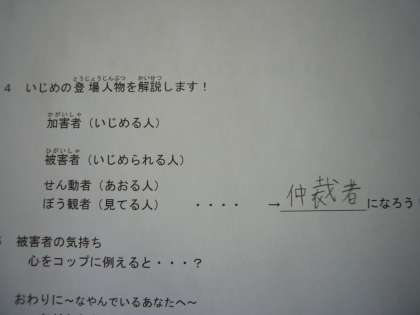 4 いじめの登場人物を解説します!
とうじょうじんぶつ かいせつ
加害者(いじめる人)
かがいしゃ
被害者(いじめられる人)
ひがいしゃ
せん動者(あおる人)
ぼう観者(見てる人) ・・・・ → 仲裁者になろう!
被害者の気持ち
心をコップに例えると・・・?
おわりに~なやんでいるあなたへ~